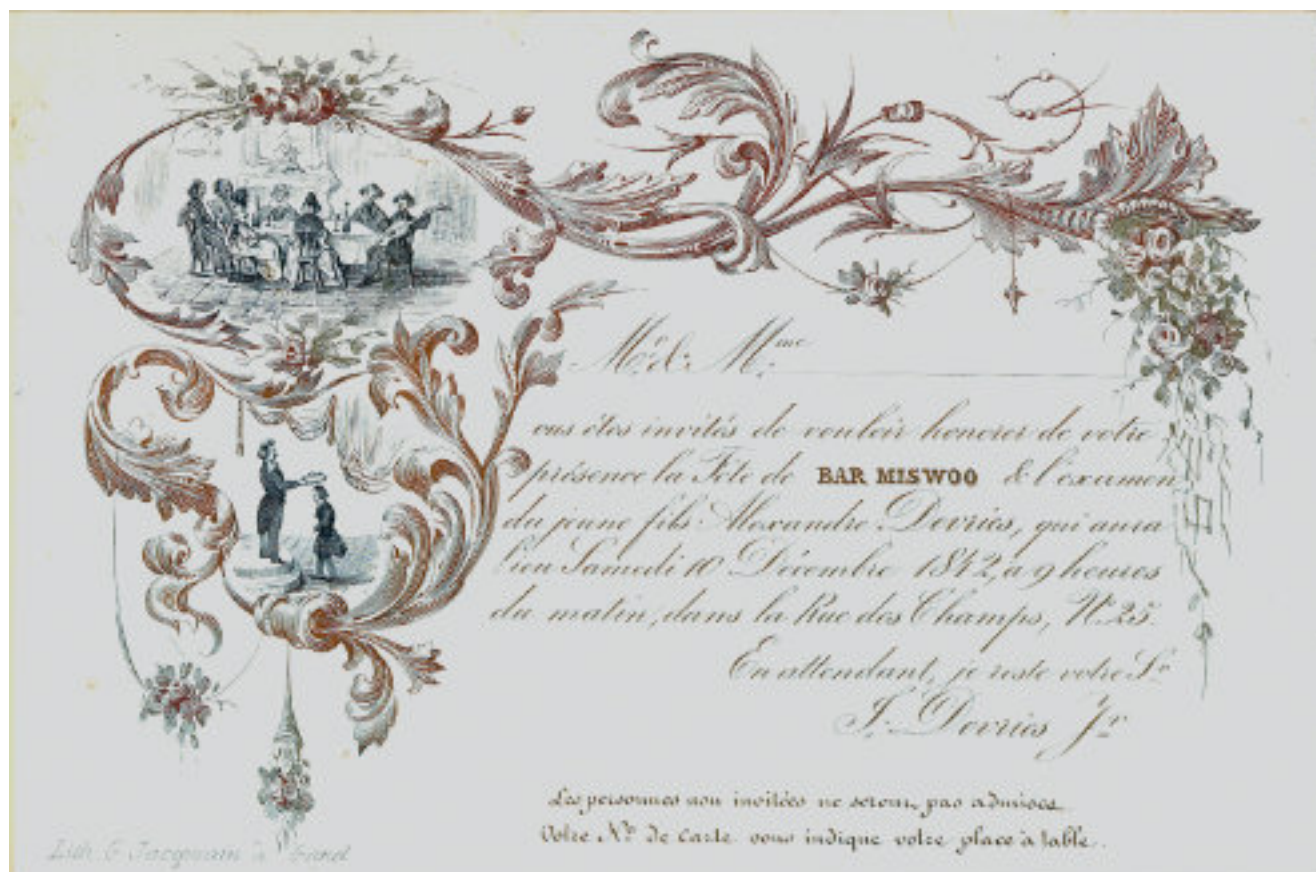 Mr. & Mme.
ous êtes invités de vouloir honorer de votre
présence la Fête de BAR MISWOO & l'examen
du jeune fils Alexandre Devries, qui aura
lieu Samedi 10 Décembre 1842, a 9 heures
du matin, dans la Rue des Champs, No. 25.
En attendant, je reste votre Sr.
J. Devries Jr.
Les personnes non invitées ne seront pas admises
Votre No. de carte vous indique votre place à table.
Lith. G. Jacqmain à Gand